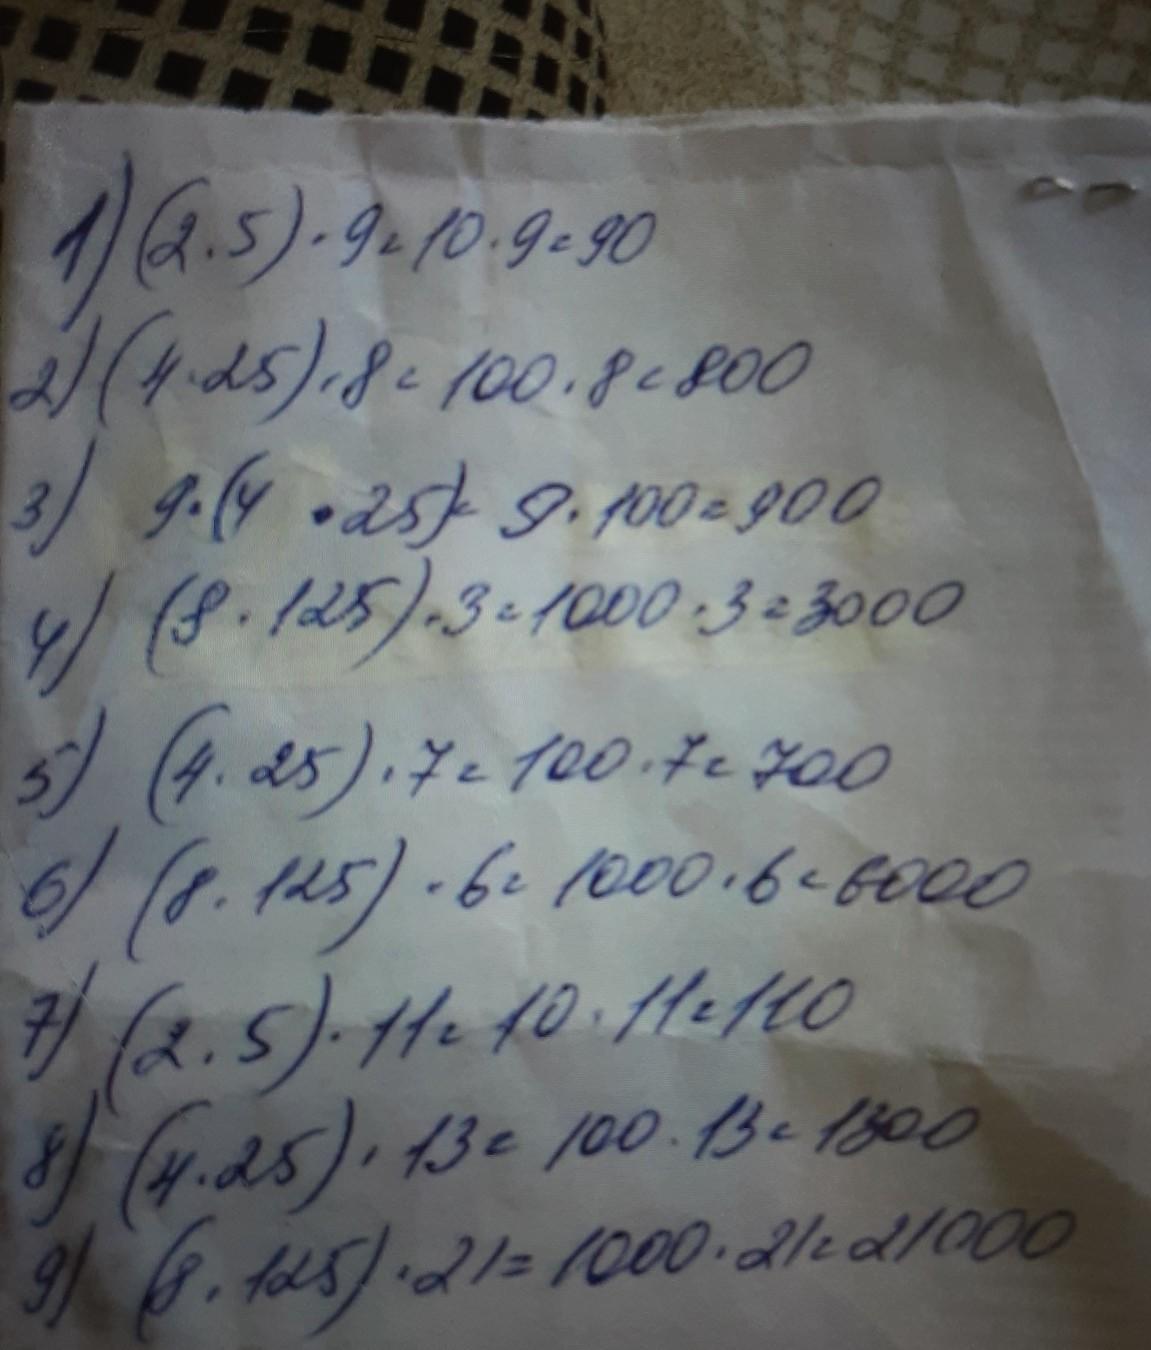 1) (2.5) · 9 = 10 · 9 = 90
2) (4 · 25) · 8 = 100 · 8 = 800
3) 9 · (4 · 25) = 9 · 100 = 900
4) (8 · 125) · 3 = 1000 · 3 = 3000
5) (4 · 25) · 7 = 100 · 7 = 700
6) (8 · 125) · 6 = 1000 · 6 = 6000
7) (2 . 5) · 11 = 10 · 11 = 110
8) (4 · 25) · 13 = 100 · 13 = 1300
9) (8 · 125) · 21 = 1000 · 21 = 21000